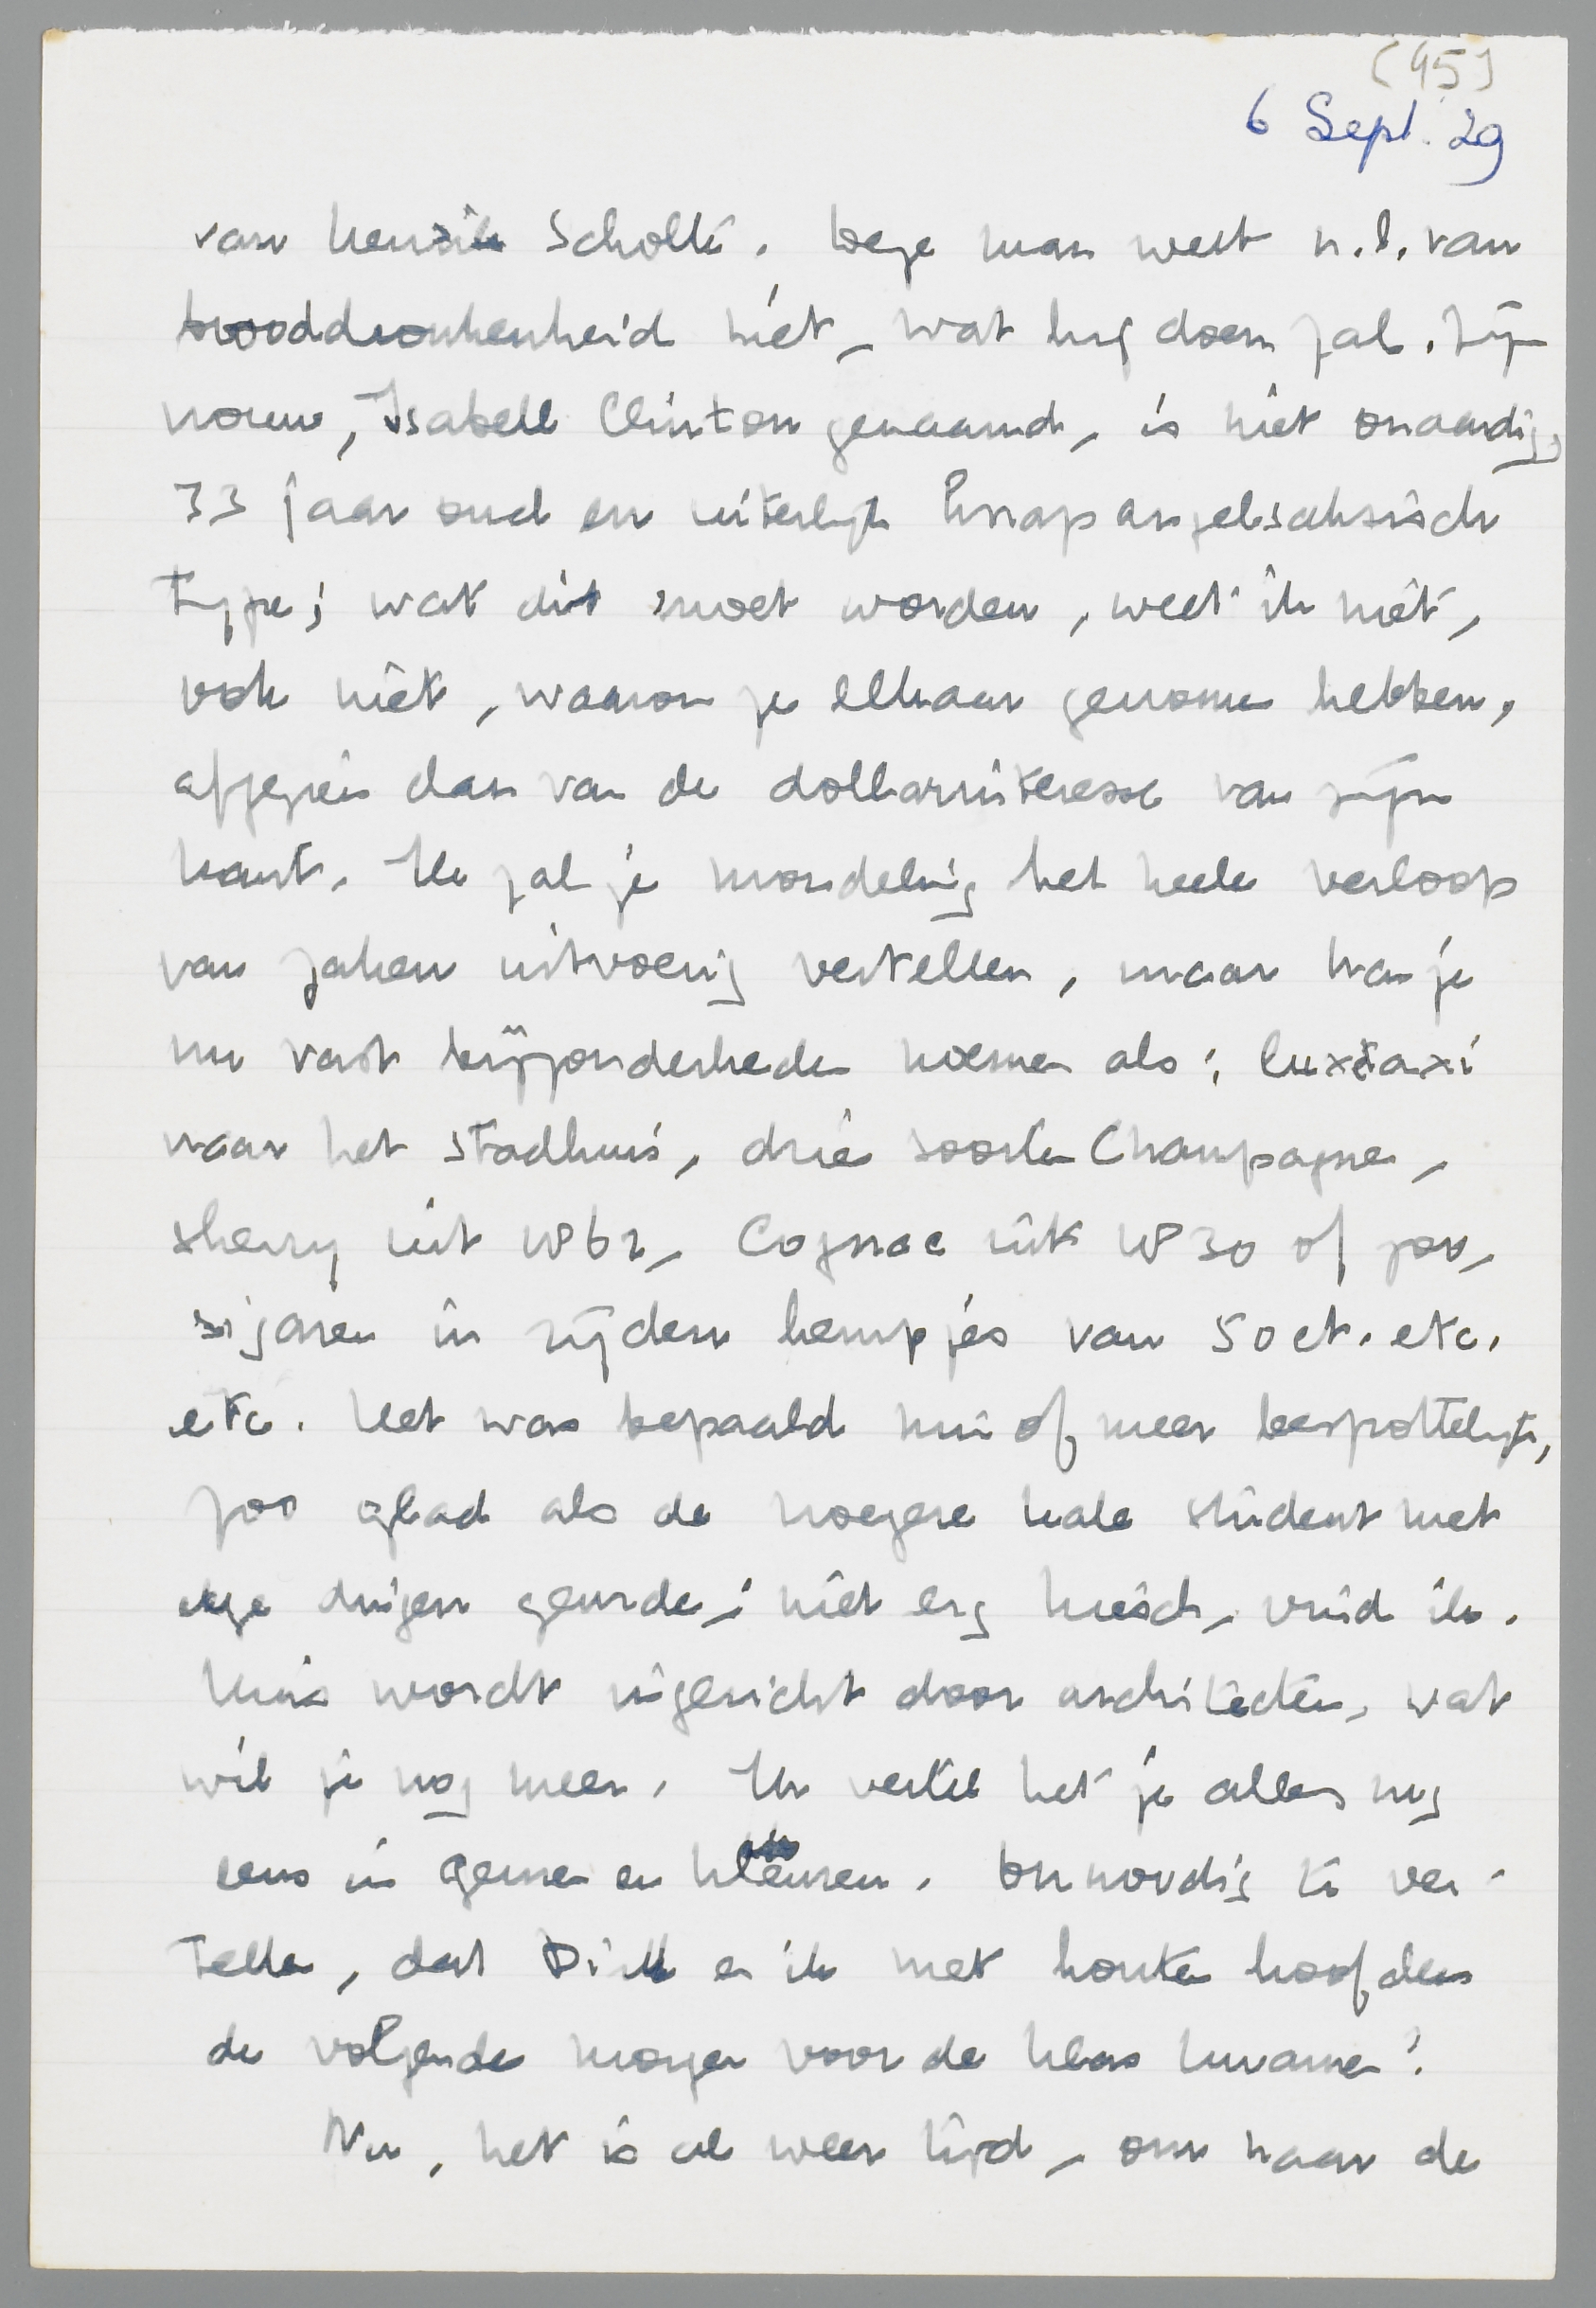 (45)
6 Sept. 29
van Henrik Scholte. Deze man weet n.l. van
brooddronkenheid niet, wat hij doen zal. Zijn
vrouw, Isabell Clinton genaamd, is niet onaardig,
33 jaar oud en uiterlijk knap angelsaksisch
type; wat dit moet worden, weet ik niet,
ook niet, waarom ze elkaar genomen hebben,
afgezien dan van de dollarinteresse van zijn
kant. Ik zal je mondeling het heele verloop
van zaken uitvoerig vertellen, maar kan je
nu vast bijzonderheden noemen als: luxetaxi
naar het stadhuis, drie soorten Champagne,
sherry uit 1862, Cognac uit 1830 of zoo,
sigaren in zijden hempjes van 50 ct. etc.
etc. Het was bepaald min of meer bespottelijk,
zoo glad als de vroegere kale student met
deze dingen geurde; niet erg kiesch, vind ik.
Huis wordt ingericht door architecten, wat
wil je nog meer. Ik vertel het je alles nog
eens in geuren en kleuren. Onnoodig te ver-
tellen, dat Dirk en ik met houten hoofden
de volgende morgen voor de klas kwamen!
Nu, het is al weer tijd, om naar de